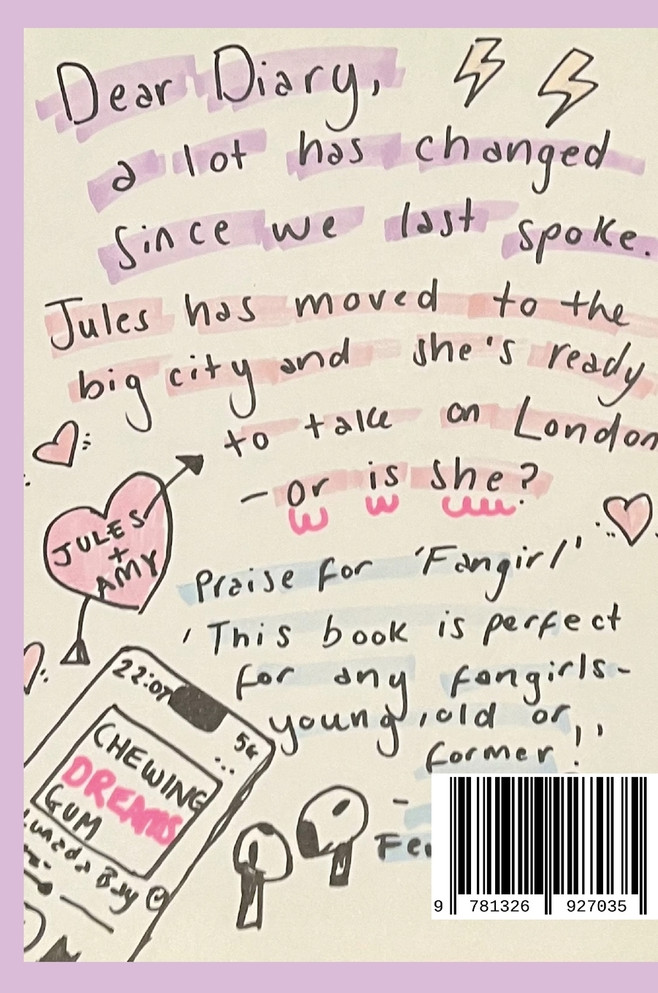 Dear Diary,
a lot has changed
since we last spoke.
Jules has moved to the
big city and she's ready
to take on London
- or is she?
JULES
+
AMY
Praise for 'Fangirl'
'This book is perfect
for any fangirls-
young, old or,
former!'
-
22:07
5G
CHEWING
DREAMS
GUM
Lunada Bay
9 781326 927035